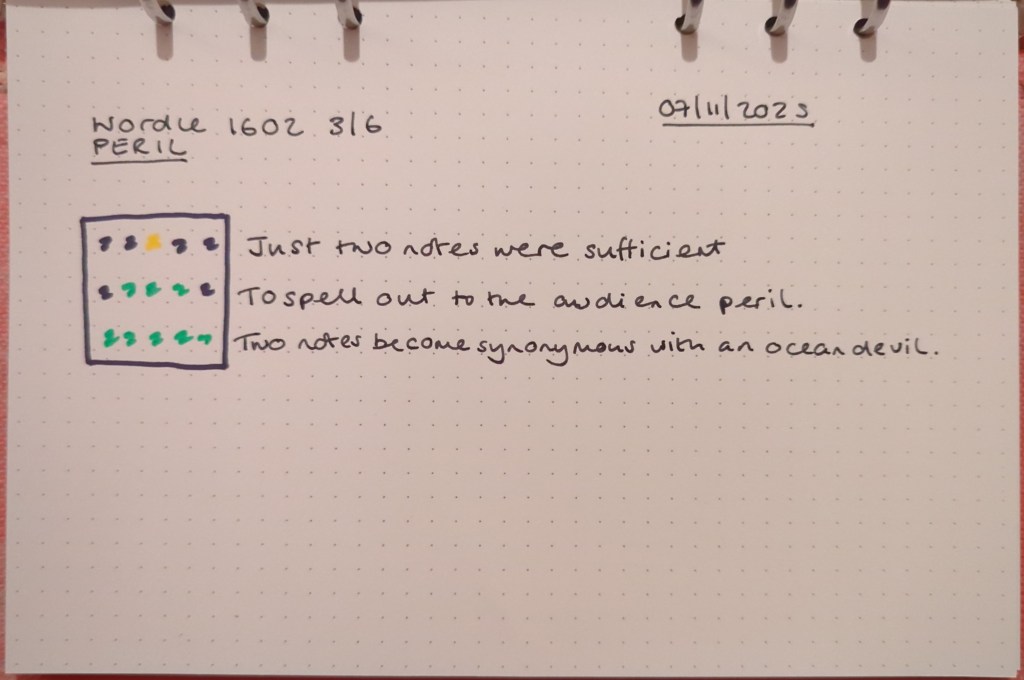 Wordle 1602 3/6
07/11/2025
PERIL
Just two notes were sufficient
To spell out to the audience peril.
Two notes become synonymous with an ocean devil.